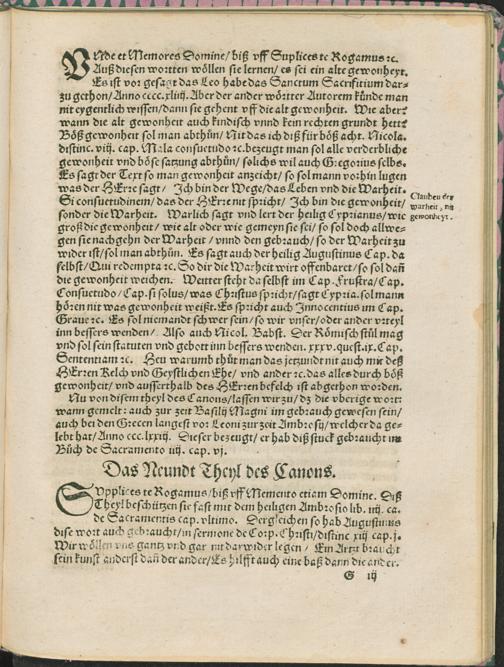 VNde et Memores Domine/ biß vff Suplices te Rogamus ꝛc.
Auß diesen wortten wöllen sie lernen/ es sei ein alte gewonheyt.
Es ist vor gesagt das Leo habe das Sanctum Sacrifitium dar-
zu gethon/ Anno cccc.xliiij. Aber der ander wörtter Autorem künde man
nit eygentlich wissen/ dann sie gehent vff die alt gewonheit. Wie aber/
wann die alt gewonheit auch kindisch vnnd kein rechten grundt hett/
Böß gewonheit sol man abthůn/ Nit das ich diß für böß acht. Nicola.
distinc. viij. cap. Mala consuetudo ꝛc. bezeugt man sol alle verderbliche
gewonheit vnd böse satzung abthůn/ solichs wil auch Gregorius selbs.
Es sagt der Text so man gewonheit anzeicht/ so sol man vorhin lugen
was der HErre sagt/ Ich bin der Wege/ das Leben vnd die Warheit.
Si consuetudinem/ das der HErre nit spricht/ Ich bin die gewonheit/
sonder die Warheit. Warlich sagt vnd lert der heilig Cyprianus/ wie
groß die gewonheit/ wie alt oder wie gemeyn sie sei/ so sol doch allwe-
gen sie nachgehn der Warheit/ vnnd den gebrauch/ so der Warheit zu
wider ist/ sol man abthůn. Es sagt auch der heilig Augustinus Cap. da
selbst/ Qui redempta ꝛc. So dir die Warheit wirt offenbaret/ so sol dañ
die gewonheit weichen. Weitter steht da selbst im Cap. Frustra/ Cap.
Consuetudo/ Cap. si solus/ was Christus spricht/ sagt Cypria. sol mann
hören nit was gewonheit weißt. Es spricht auch Innocentius im Cap.
Graue ꝛc. Es sol niemandt schwer sein/ so wir vnser/ oder ander vrteyl
inn bessers wenden/ Also auch Nicol. Babst. Der Römisch stůl mag
vnd sol sein statuten vnd gebott inn bessers wenden. xxxv. quest. ix. Cap.
Sententiam ꝛc. Heu warumb thůt man das jetzundt nit auch mit deß
HErren Kelch vnd Geystlichen Ehe/ vnd ander ꝛc. das alles durch böß
gewonheit/ vnd ausserthalb des HErren befelch ist abgethon worden.
Nu von disem theyl des Canons/ lassen wir zu/ dz die vberige wort/
wann gemelt/ auch zur zeit Basilij Magni im gebrauch gewesen sein/
auch bei den Grecen langest vor Leoni zur zeit Ambrosij/ welcher da ge-
lebt hat/ Anno ccc.lxxiij. Dieser bezeugt/ er hab diß stuck gebraucht im
Bůch de Sacramento iiij. cap. vj.
Clauben der
warheit, nit
gewonheyt.
Das Neundt Theyl des Canons.
SVpplices te Rogamus/ biß vff Memento etiam Domine. Diß
Theyl beschützen sie fast mit dem heiligen Ambrosio lib. iiij. ca.
de Sacramentis cap. vltimo. Dergleichen so hab Augustinus
dise wort auch gebraucht/ in sermone de Corp. Christi/ distinc xiij cap. j.
Wir wöllen vns gantz vnd gar nit darwider legen/ Ein Artzt braucht
sein kunst anderst dañ der ander/ Es hilfft auch eine baß dann die ander.
G iij